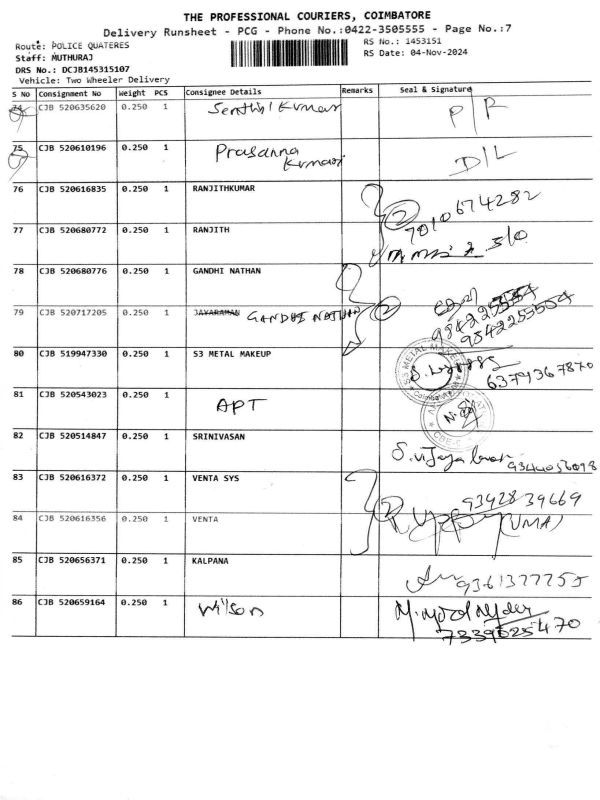 THE PROFESSIONAL COURIERS, COIMBATORE
Delivery Runsheet - PCG - Phone No.:0422-3505555 - Page No.:7
Route: POLICE QUATERES
RS No.: 1453151
Staff: MUTHURAJ
RS Date: 04-Nov-2024
DRS No.: DCJB145315107
Vehicle: Two Wheeler Delivery
S No Consignment No Weight PCS Consignee Details Remarks Seal & Signature
74 CJB 520635620 0.250 1 Senthil Kumar P/F
75 CJB 520610196 0.250 1 Prasanna Kumar D/L
76 CJB 520616835 0.250 1 RANJITHKUMAR 2 7010674282
77 CJB 520680772 0.250 1 RANJITH S/O
78 CJB 520680776 0.250 1 GANDHI NATHAN
79 CJB 520717205 0.250 1 JAYARAMAN GANDHI NATHAN 2 9842255554
80 CJB 519947330 0.250 1 S3 METAL MAKEUP 6379367870
81 CJB 520543023 0.250 1 APT
82 CJB 520514847 0.250 1 SRINIVASAN
83 CJB 520616372 0.250 1 VENTA SYS 2 9392839669
84 CJB 520616356 0.250 1 VENTA (UMA)
85 CJB 520656371 0.250 1 KALPANA 9361377755
86 CJB 520659164 0.250 1 Wilson
7339625470